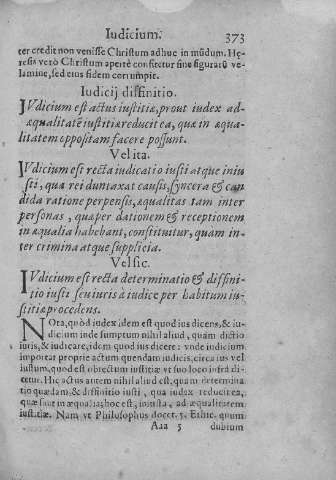 Iudicium. 373
ter credit non venisse Christum adhuc in mũdum. Hę-
resis verò Christum apertè confitetur sine figurarũ ve-
lamine, sed eius fidem corrumpit.
Iudicij diffinitio.
IVdicium est actus iustitiæ, prout iudex ad-
æqualitatẽ iustitiæ reducit ea, quæ in æqua-
litatem oppositam facere possunt.
Vel ita.
IVdicium est recta iudicatio iusti atque iniu
sti, qua rei duntaxat causis, syncera & can
dida ratione perpensis, æqualitas tam inter
personas, quæ per dationem & receptionem
in æqualia habebant, constituitur, quam in-
ter crimina atque supplicia.
Vel sic.
IVdicium est recta determinatio & diffini-
tio iusti seu iuris à iudice per habitum iu-
stitiæ procedens.
NOta, quòd iudex idem est quod ius dicens, & iu-
dicium inde sumptum nihil aliud, quàm dictio
iuris, & iudicare, idem quod ius dicere: vnde iudicium
importat propriè actum quendam iudicis, circa ius vel
iustum, quod est obiectum iustitiæ vt suo loco infrà di-
cetur. Hic actus autem nihil aliud est, quàm determina
tio quædam, & diffinitio iusti, qua iudex reducit ea,
quæ sunt inæqualia, hoc est, iniusta, ad æqualitatem
iustitiæ. Nam vt Philosophus docet 5. Ethic. quum
Aaa 5 dubium